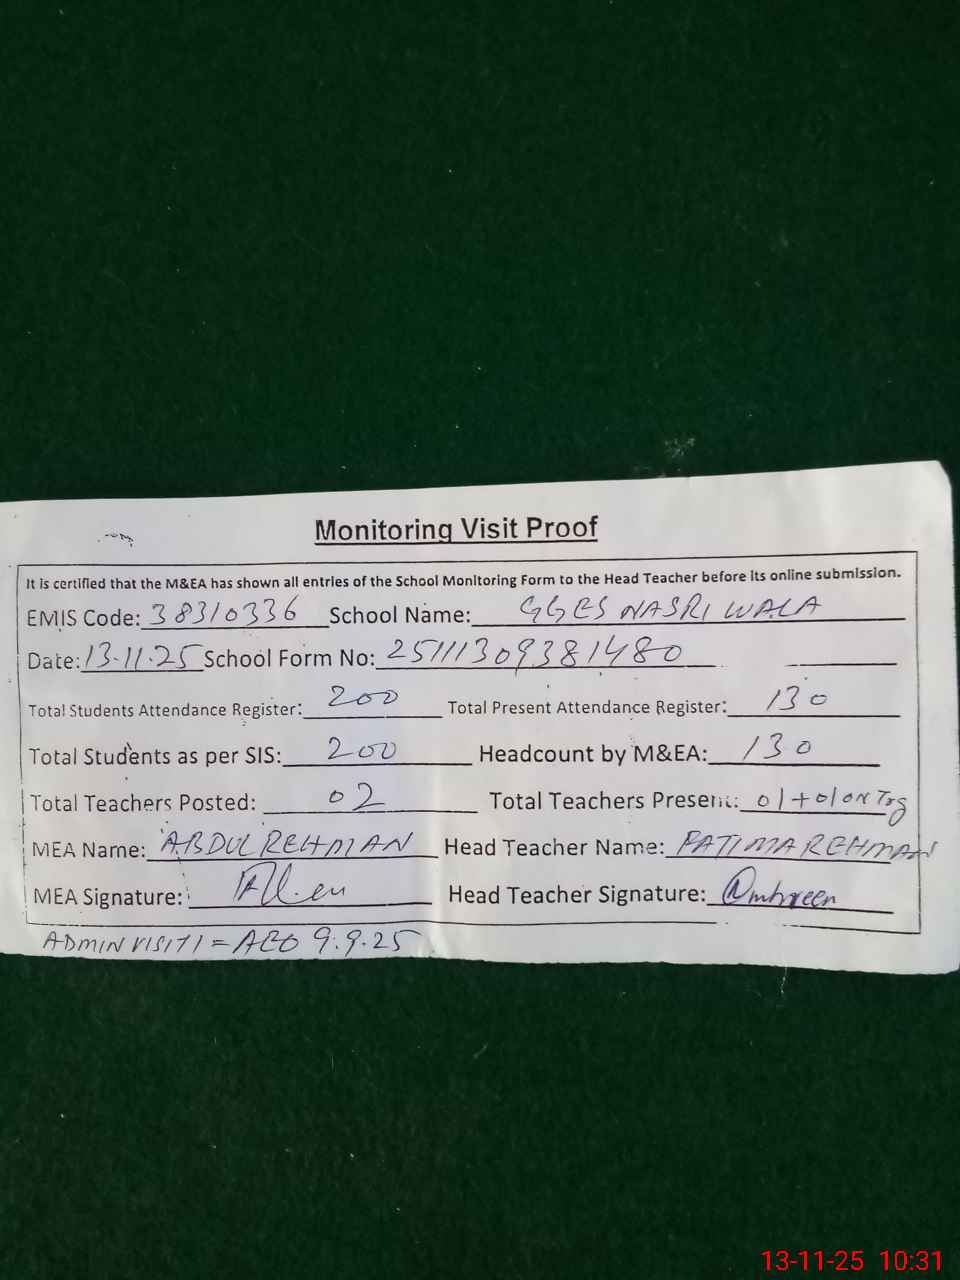 Monitoring Visit Proof
It is certified that the M&EA has shown all entries of the School Monitoring Form to the Head Teacher before its online submission.
EMIS Code: 38310336 School Name: GGES NASRI WALA
Date: 13.11.25 School Form No: 25111309381480
Total Students Attendance Register: 200 Total Present Attendance Register: 130
Total Students as per SIS: 200 Headcount by M&EA: 130
Total Teachers Posted: 02 Total Teachers Present: 01+01 ON Trg
MEA Name: ABDUL REHMAN Head Teacher Name: FATIMA REHMAN
MEA Signature: Head Teacher Signature: Ambreen
ADMIN VISIT 1 = AEO 9.9.25
13-11-25 10:31